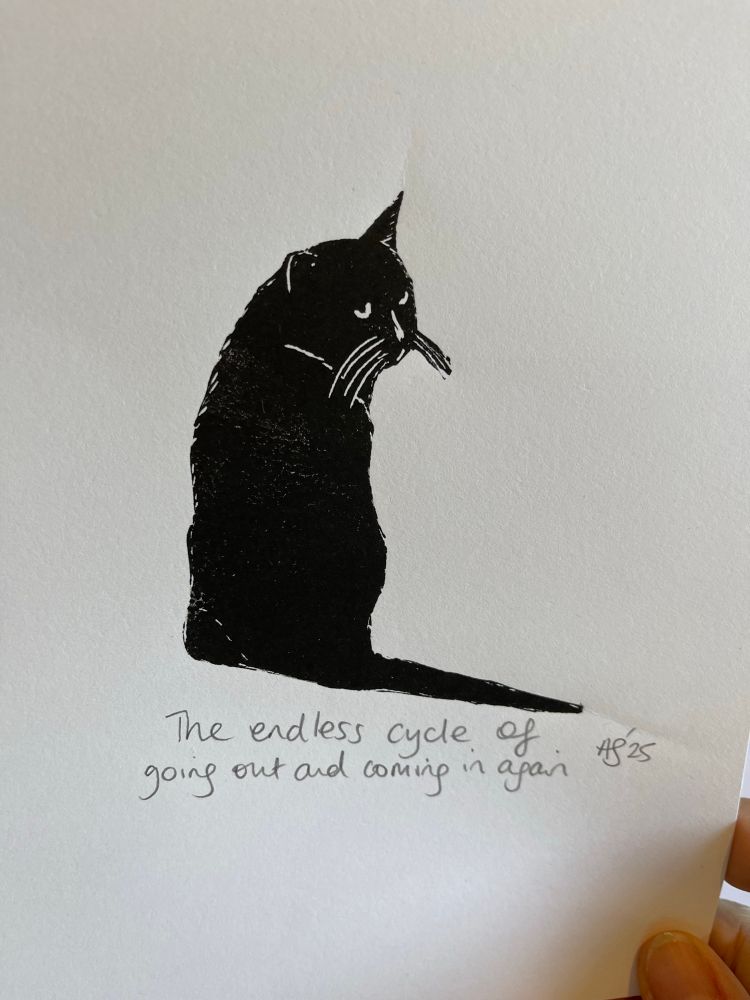 The endless cycle of
going out and coming in again
AG '25